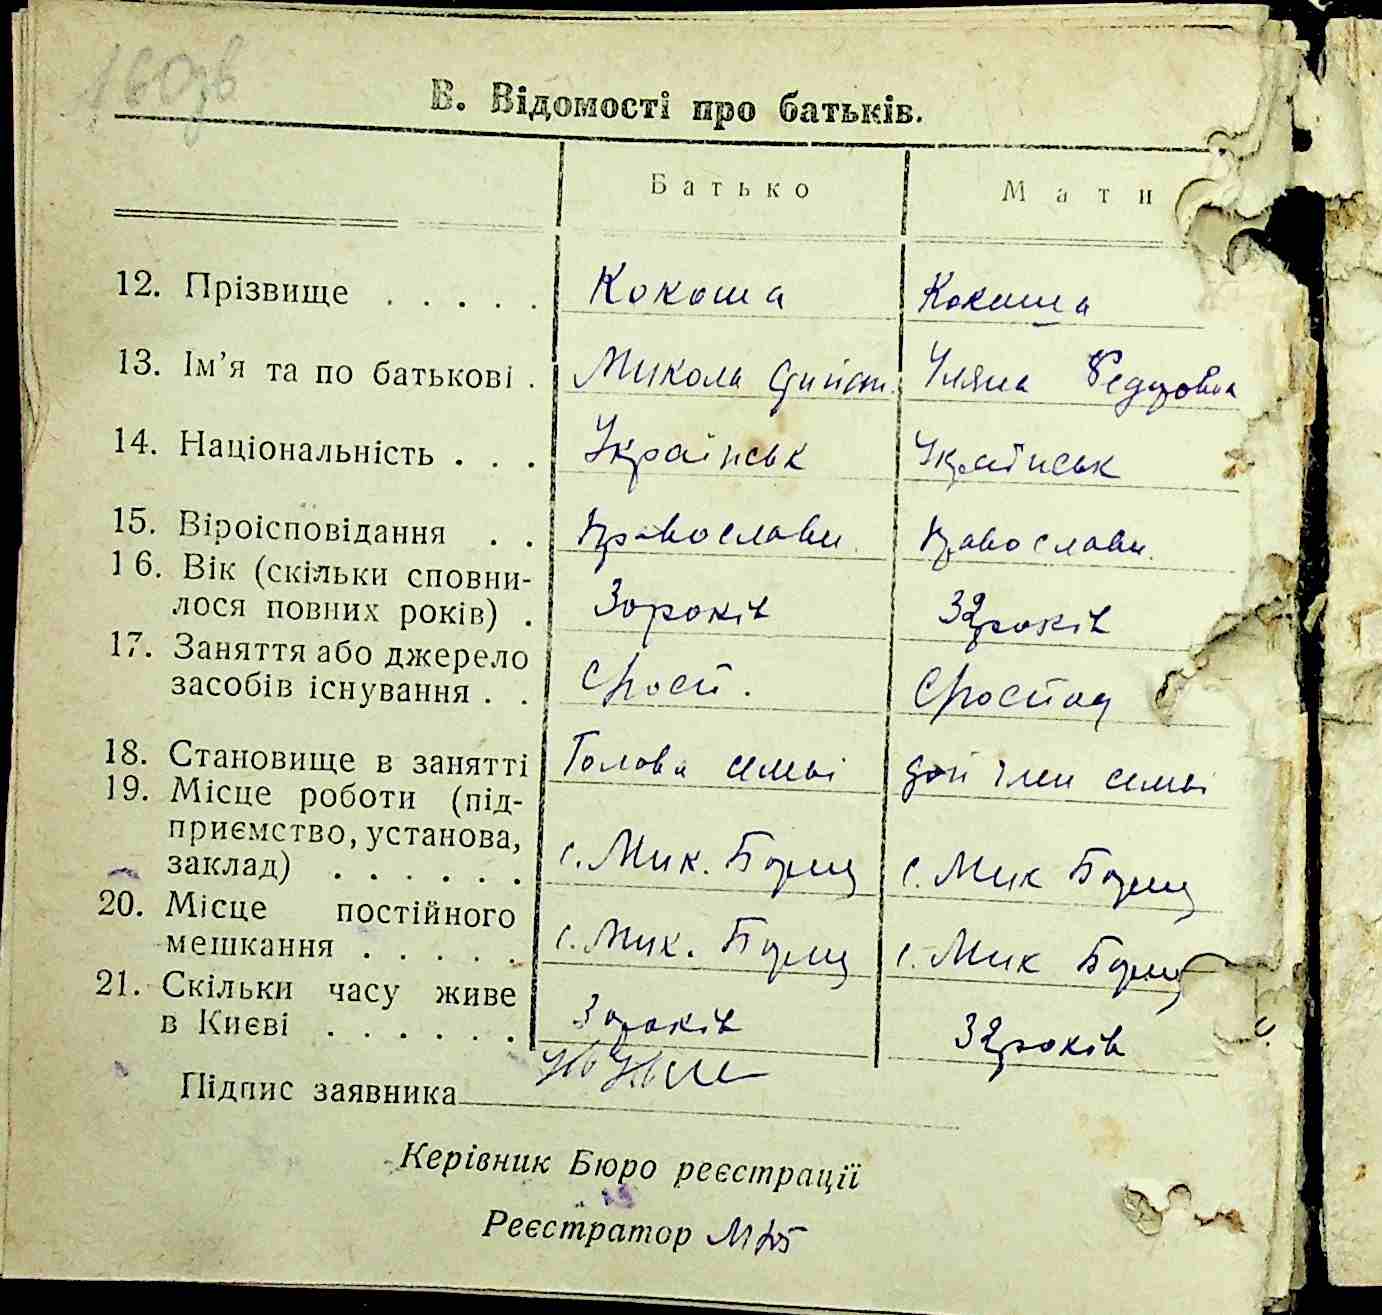 160зв
В. Відомості про батьків.
Батько Мати
12. Прізвище . . . . . Кокоша Кокоша
13. Ім’я та по батькові . Микола Уляна Федоровна
14. Національність . . . Українськ Українськ
15. Віроісповідання . . Православн. Православн.
16. Вік (скільки сповни-
лося повних років) . 30 років 32 років
17. Заняття або джерело
засобів існування . .
18. Становище в занятті Голова семьі член семьі
19. Місце роботи (під-
приємство, установа,
заклад) . . . . . . с. Мик. Борщ с. Мик Борщ
20. Місце постійного
мешкання . . . . . с. Мик. Борщ с. Мик Борщ
21. Скільки часу живе
в Києві . . . . . . 30 років 32 років
Підпис заявника
Керівник Бюро реєстрації
Реєстратор